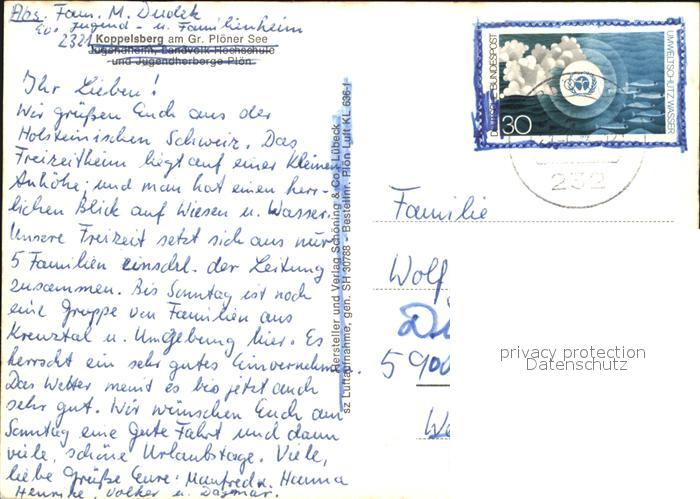 Abs. Fam. M. Dudek
Ev. Jugend- u. Familienheim
2321 Koppelsberg am Gr. Plöner See
Jugendheim, Landvolk-Hochschule
und Jugendherberge Plön
Ihr Lieben!
Wir grüßen Euch aus der
Holsteinischen Schweiz. Das
Freizeitheim liegt auf einer kleinen
Anhöhe, und man hat einen herr-
lichen Blick auf Wiesen u. Wasser.
Unsere Freizeit setzt sich aus nur
5 Familien einschl. der Leitung
zusammen. Bis Sonntag ist noch
eine Gruppe von Familien aus
Kreuztal u. Umgebung hier. Es
herrscht ein sehr gutes Einvernehmen.
Das Wetter meint es bis jetzt auch
sehr gut. Wir wünschen Euch am
Sonntag eine gute Fahrt und dann
viele, schöne Urlaubstage. Viele,
liebe Grüße Eure: Manfred u. Hanna
Henrike, Volker u. Dagmar.
Hersteller und Verlag Schöning & Co., Lübeck
sz Luftaufnahme, gen. SH 30/788 - Bestellnr. Plön Luft KL 636-1
DEUTSCHE BUNDESPOST
30
UMWELTSCHUTZ WASSER
232
Familie
Wolf
5900
privacy protection
Datenschutz